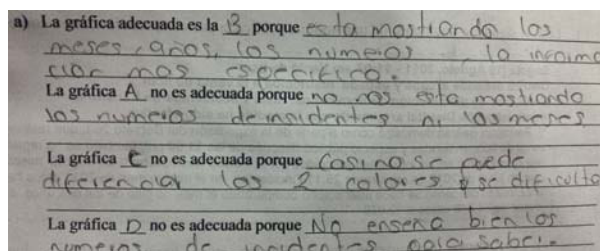 a) La gráfica adecuada es la B porque esta mostiando los
meses, años, los numeros, la informa
cion mas especifica.
La gráfica A no es adecuada porque no nos esta mostiando
los numeros de insidentes ni los meses
La gráfica C no es adecuada porque Casi no se puede
diferenciar los 2 colores y se dificulta
La gráfica D no es adecuada porque No enseña bien los
numeros de insidentes para saber.